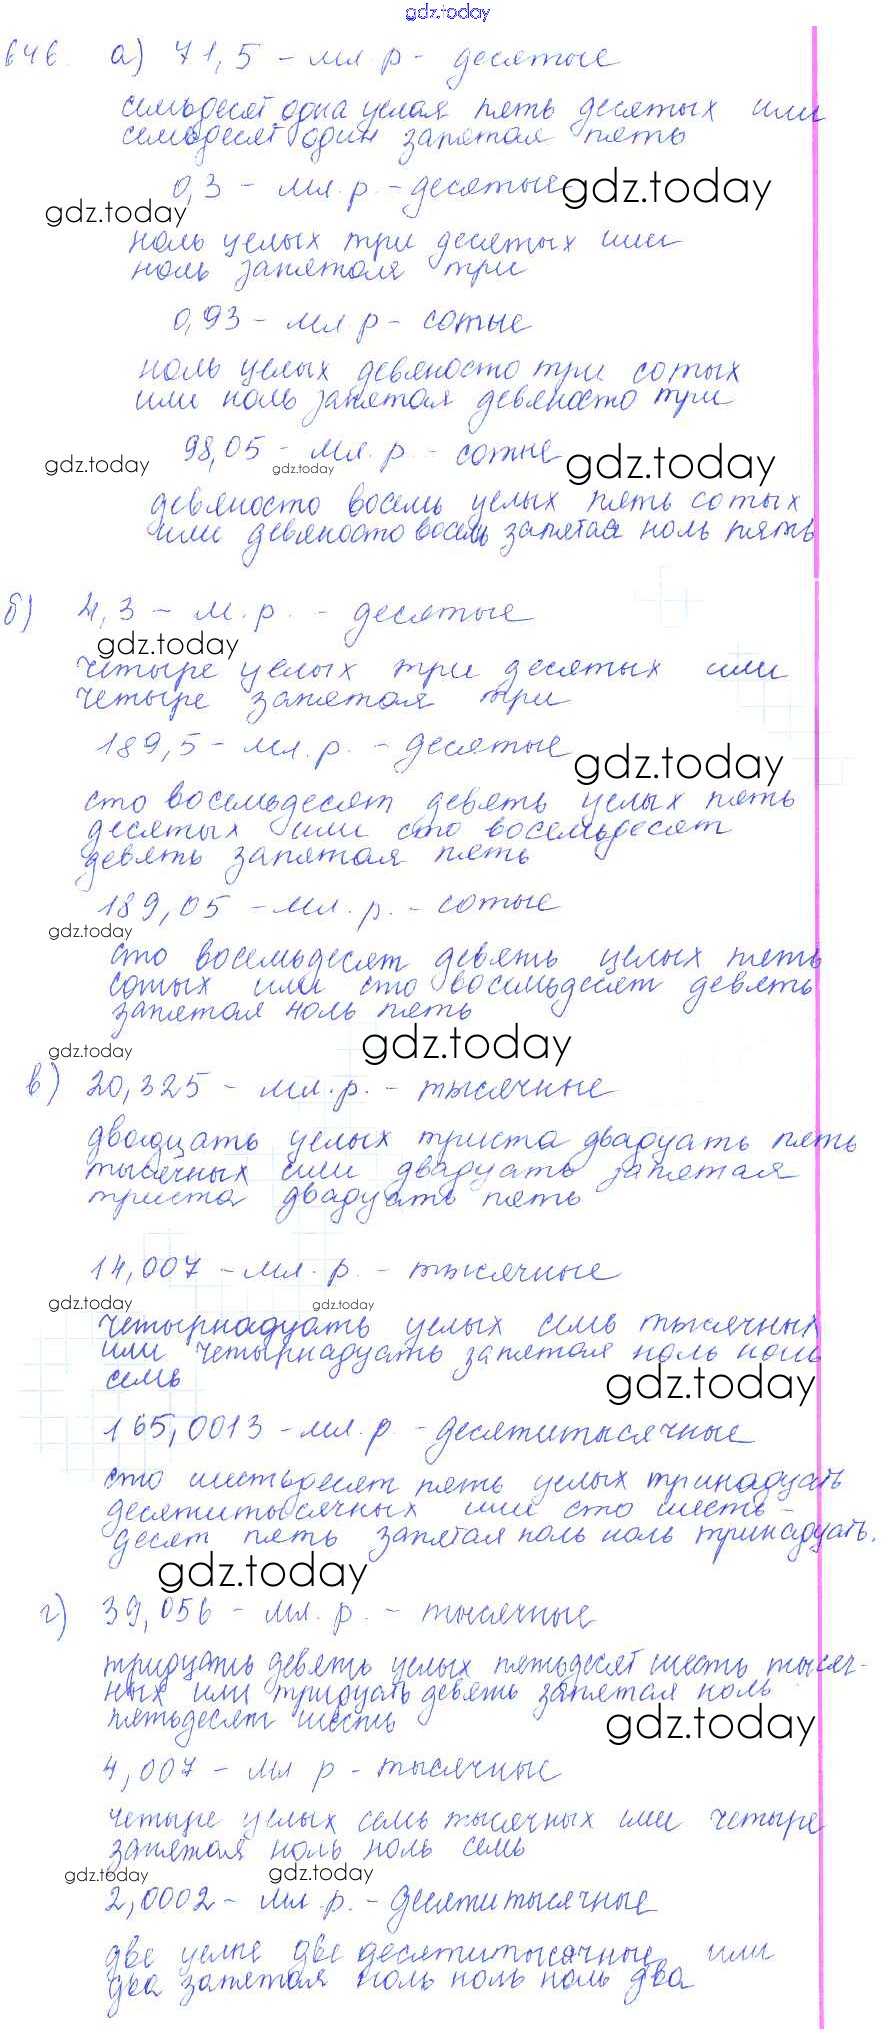 gdz.today
646. а) 71,5 - мл.р - десятые
семьдесят одна целая пять десятых или
семьдесят один запятая пять
0,3 - мл.р. - десятые gdz.today
gdz.today
ноль целых три десятых или
ноль запятая три
0,93 - мл.р - сотые
ноль целых девяносто три сотых
или ноль запятая девяносто три
98,05 - мл.р. - сотые
gdz.today gdz.today gdz.today
девяносто восемь целых пять сотых
или девяносто восемь запятая ноль пять
б) 4,3 - м.р. - десятые
gdz.today
четыре целых три десятых или
четыре запятая три
189,5 - мл.р. - десятые
gdz.today
сто восемьдесят девять целых пять
десятых или сто восемьдесят
девять запятая пять
189,05 - мл.р. - сотые
gdz.today
сто восемьдесят девять целых пять
сотых или сто восемьдесят девять
запятая ноль пять
gdz.today gdz.today
в) 20,325 - мл.р. - тысячные
двадцать целых триста двадцать пять
тысячных или двадцать запятая
триста двадцать пять
14,007 - мл.р. - тысячные
gdz.today gdz.today
четырнадцать целых семь тысячных
или четырнадцать запятая ноль ноль
семь
gdz.today
165,0013 - мл.р. - десятитысячные
сто шестьдесят пять целых тринадцать
десятитысячных или сто шесть-
десят пять запятая ноль ноль тринадцать.
gdz.today
г) 39,056 - мл.р. - тысячные
тридцать девять целых пятьдесят шесть тысяч-
ных или тридцать девять запятая ноль
пятьдесят шесть
gdz.today
4,007 - мл р - тысячные
четыре целых семь тысячных или четыре
запятая ноль ноль семь
gdz.today gdz.today
2,0002 - мл.р. - десятитысячные
две целые две десятитысячные или
два запятая ноль ноль ноль два